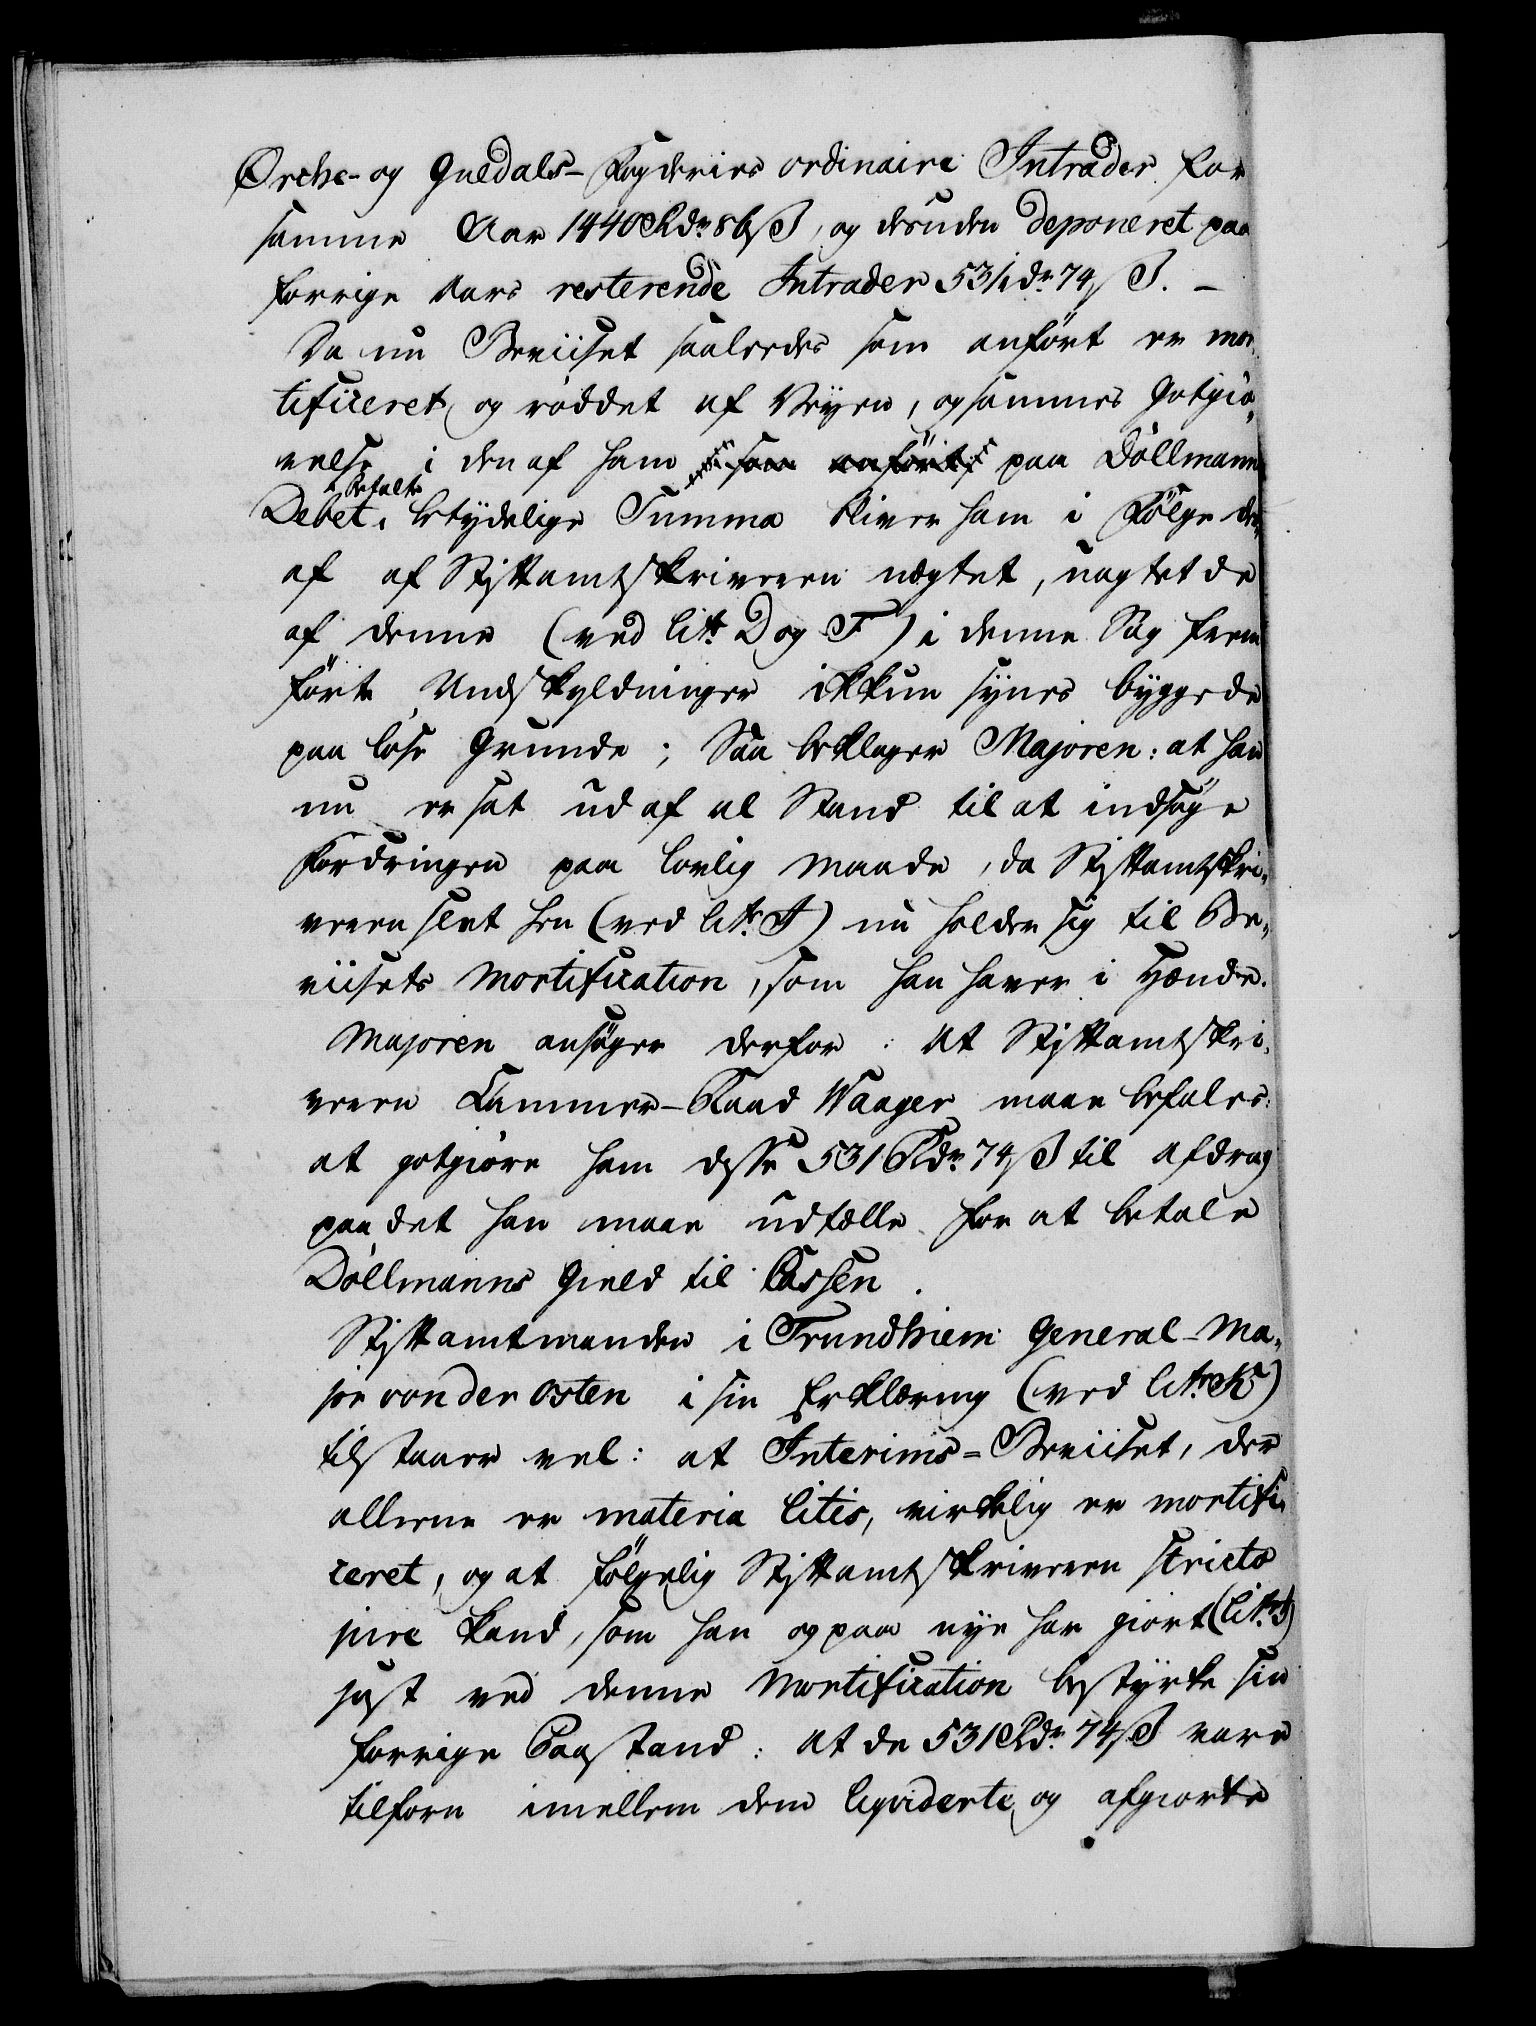 Orche- og Guldals-Fogderies ordinaire Intrader for
samme Aar 1440 Rdr 86 ß, og desuden deponeret paa
forrige Aars resterende Intrader 531 rdr 74 ß. -
Da nu Beviiset saaledes som anført er mor¬
tificeret, og røddet af Veyen, og sammes Godtgiø¬
velse i den af ham som anført paa Döllmanns
betalte
Debet, betydelige Summa bliver ham i Følge der¬
af af Stiftamtskriveren nægtet, uagtet de
af denne (ved litr. D og F) i denne Sag frem
førte Undskyldninger ikkun synes byggede
paa løse Grunde; Saa beklager Majoren: at han
nu er sat ud af al Stand til at indsøge
Fordringen paa lovlig Maade, da Stiftamtskri¬
veren slet hen (ved litr. I) nu holder sig til Be¬
viisets Mortification, som han haver i Hænde.
Majoren ansøger derfor: At Stiftamtskri¬
veren Kammer-Raad Waager maae befales:
at godtgiøre ham disse 531 Rdr 74 ß til Afdrag
paa det han maae udtælle for at betale
Döllmanns Gield til Cassen.
Stiftamtmanden i Trundhiem General-Ma¬
jor von der Osten i sin Erklæring (ved litr. K)
tilstaaer vel: at Interims-Beviiset, der
allene er materia litis, virkelig er mortifi¬
ceret, og at følgelig Stiftamtskriveren stricto
jure kand, som han og paa nye har giort (litr. I)
just ved denne Mortification bestyrke sin
forrige Paastand: At de 531 Rdr 74 ß vare
tilforn imellem dem liqviderte og afgiorte